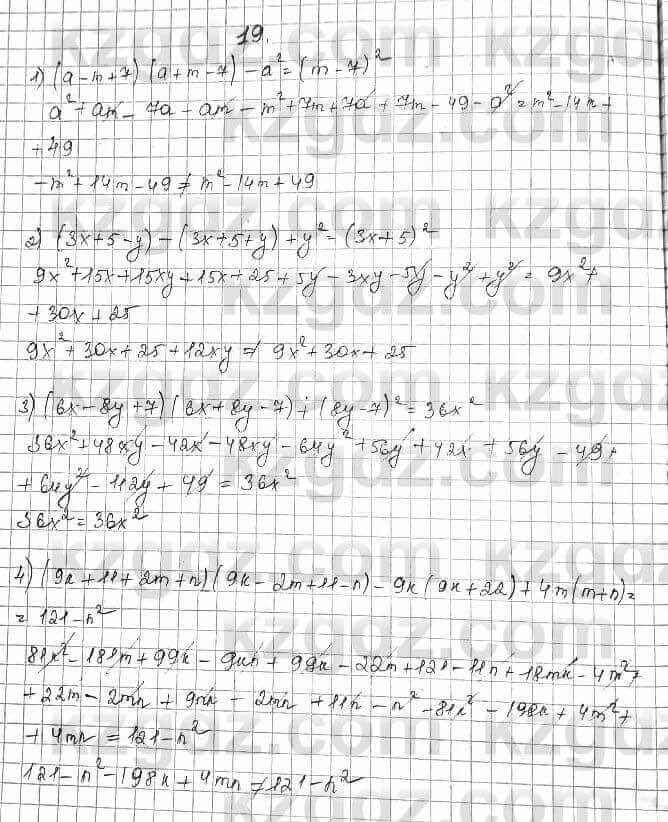 19.
1) (a-m+7)(a+m-7)-a²=(m-7)²
a²+am-7a-am-m²+7m+7a+7m-49-a²=m²-14m+
+49
-m²+14m-49≠m²-14m+49
2) (3x+5-y)-(3x+5+y)+y²=(3x+5)²
9x²+15x+15xy+15x+25+5y-3xy-5y-y²+y²=9x²+
+30x+25
9x²+30x+25+12xy≠9x²+30x+25
3) (6x-8y+7)(6x+8y-7)+(8y-7)²=36x²
36x²+48xy-42x-48xy-64y²+56y+42x+56y-49+
+64y²-112y+49=36x²
36x²=36x²
4) (9k+11+2m+n)(9k-2m+11-n)-9k(9k+22)+4m(m+n)=
=121-n²
81k²-181m+99k-9kn+99k-22m+121-11n+18mk-4m²+
+22m-2mn+9nk-2mn+11n-n²-81k²-198k+4m²+
+4mn=121-n²
121-n²-198k+4mn≠121-n²
kzgdz.com